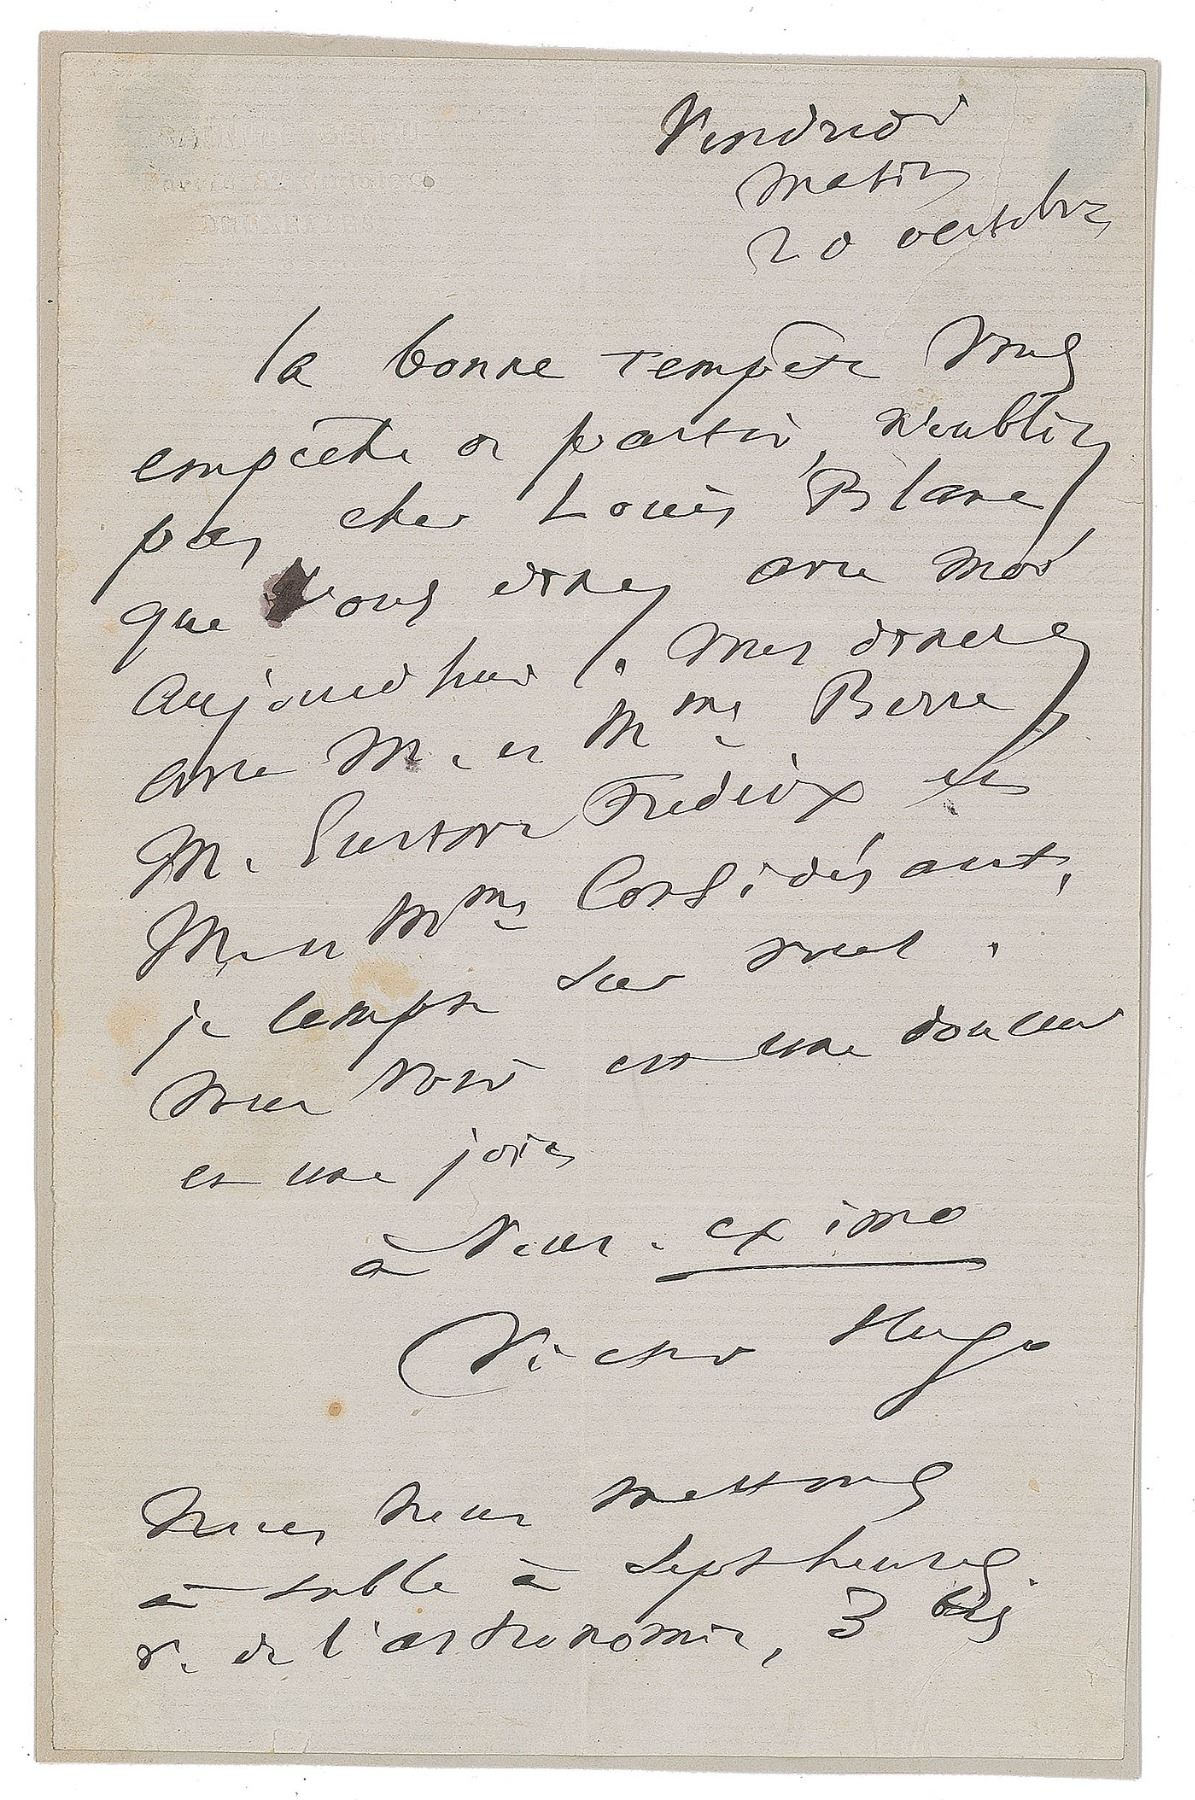 Vendredi
matin
20 octobre
la bonne tempête vous
empêche de partir, n'oubliez
pas, cher Louis Blanc,
que vous dînez avec moi
aujourd'hui. vous dînerez
avec M. et Mme Berru
M. Gustave Frédérix et
M. et Mme Considérant,
je compte sur vous.
vous voir est une douceur
et une joie
à vous. ex imo
Victor Hugo
Nous nous mettons
à table à sept heures.
r. de l'astronomie, 3 bis